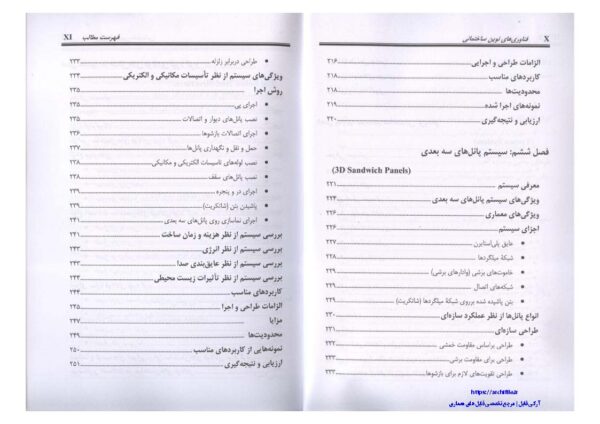 X فناوری‌های نوین ساختمانی
الزامات طراحی و اجرایی ۲۱۶
کاربردهای مناسب ۲۱۸
محدودیت‌ها ۲۱۸
نمونه‌های اجرا شده ۲۱۹
ارزیابی و نتیجه‌گیری ۲۲۰
فصل ششم: سیستم پانل‌های سه بعدی
(3D Sandwich Panels)
معرفی سیستم ۲۲۱
ویژگی‌های سیستم پانل‌های سه بعدی ۲۲۴
ویژگی‌های معماری ۲۲۶
اجزای سیستم ۲۲۶
• عایق پلی‌استایرن ۲۲۷
• شبکه میلگردها ۲۲۸
• خاموت‌های برشی (وادارهای برشی) ۲۲۸
• شبکه‌های اتصال ۲۲۸
• بتن پاشیده شده برروی شبکهٔ میلگردها (شاتکریت) ۲۲۹
انواع پانل‌ها از نظر عملکرد سازه‌ای ۲۳۰
طراحی سازه‌ای ۲۳۱
• طراحی براساس مقاومت خمشی ۲۳۲
• طراحی برای مقاومت برشی ۲۳۲
• طراحی تقویت‌های لازم برای بازشوها ۲۳۲
https://archifile.ir
آرکی فایل | مرجع تخصصی فایل های معماری
فهرست مطالب XI
• طراحی دربرابر زلزله ۲۳۳
ویژگی‌های سیستم از نظر تأسیسات مکانیکی و الکتریکی ۲۳۴
روش اجرا ۲۳۵
• اجرای پی ۲۳۵
• نصب پانل‌های دیوار و اتصالات ۲۳۵
• اجرای اتصالات بازشوها ۲۳۶
• حمل و نقل و نگهداری پانل‌ها ۲۳۷
• نصب لوله‌های تاسیسات الکتریکی و مکانیکی ۲۳۸
• نصب پانل‌های سقف ۲۳۸
• اجرای در و پنجره ۲۳۹
• پاشیدن بتن (شاتکریت) ۲۳۹
• اجرای نماسازی روی پانل‌های سه بعدی ۲۴۱
بررسی سیستم از نظر هزینه و زمان ساخت ۲۴۱
بررسی سیستم از نظر انرژی ۲۴۳
بررسی سیستم از نظر عایق‌بندی صدا ۲۴۳
بررسی سیستم از نظر تأثیرات زیست محیطی ۲۴۳
کاربردهای مناسب ۲۴۴
الزامات طراحی و اجرا ۲۴۵
مزایا ۲۴۷
محدودیت‌ها ۲۴۹
نمونه‌هایی از کاربردهای مناسب ۲۵۰
ارزیابی و نتیجه‌گیری ۲۵۱